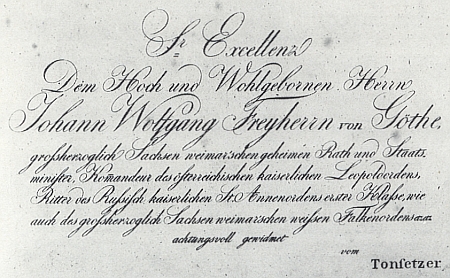 Sr Excellenz
Dem Hoch und Wohlgebornen Herrn
Johann Wolfgang Freyherrn von Göthe,
grosherzoglich Sachsen weimarschen geheimen Rath und Staats.
minister, Komandeur des österreichischen kaiserlichen Leopoldordens,
Ritter des Rußisch kaiserlichen St. Annenordens erster Klasse, wie
auch des grosherzoglich Sachsen weimarschen weissen Falkenordens
achtungsvoll gewidmet
vom
Tonsetzer